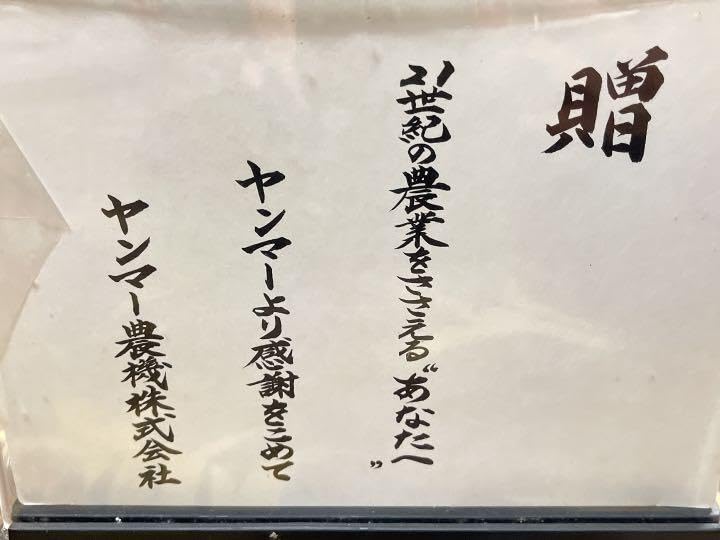 贈
21世紀の農業をささえる“あなたへ”
ヤンマーより感謝をこめて
ヤンマー農機株式会社